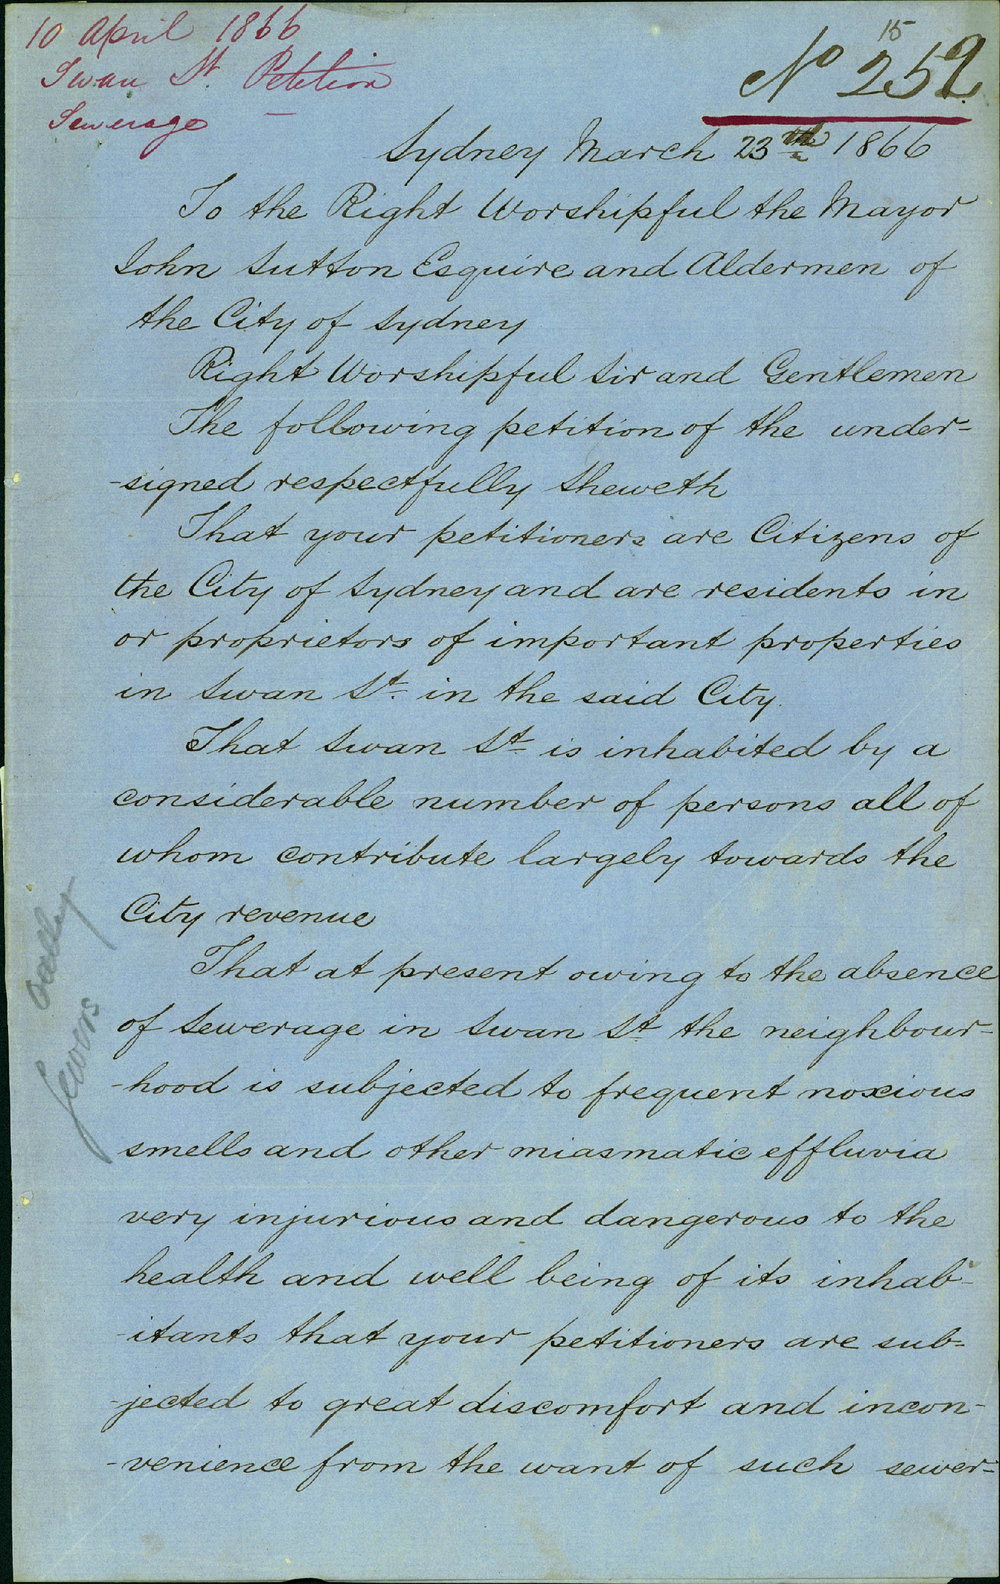 10 April 1866
Swan St. Petition
Sewerage
15
No 252
Sydney March 23th 1866
To the Right Worshipful the Mayor
John Sutton Esquire and Aldermen of
the City of Sydney
Right Worshipful Sir and Gentlemen
The following petition of the under-
-signed respectfully sheweth
That your petitioners are Citizens of
the City of Sydney and are residents in
or proprietors of important properties
in Swan St. in the said City.
That Swan St is inhabited by a
considerable number of persons all of
whom contribute largely towards the
City revenue
That at present owing to the absence
of Sewerage in Swan St the neighbour-
-hood is subjected to frequent noxious
smells and other miasmatic effluvia
very injurious and dangerous to the
health and well being of its inhab-
-itants that your petitioners are sub-
-jected to great discomfort and incon-
-venience from the want of such sewer-
Sewers